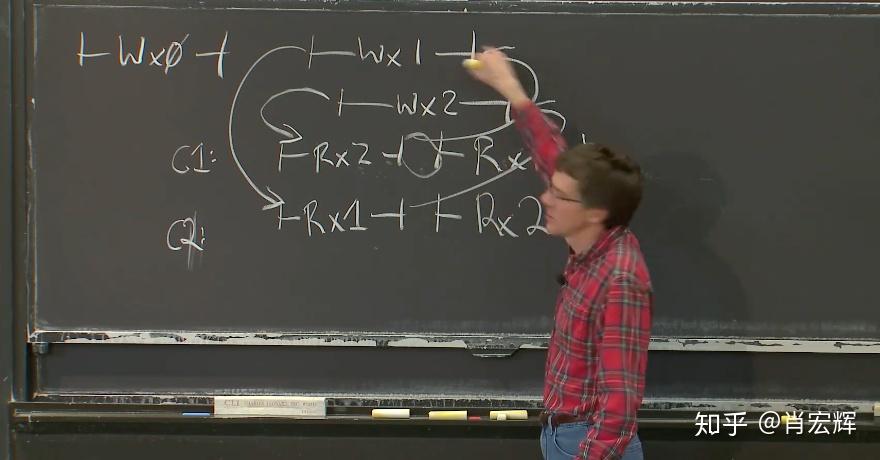 ⊢Wx0⊣ ⊢Wx1⊣
⊢Wx2⊣
C1: ⊢Rx2⊣ ⊢Rx
C2: ⊢Rx1⊣ ⊢Rx2
知乎 @肖宏辉